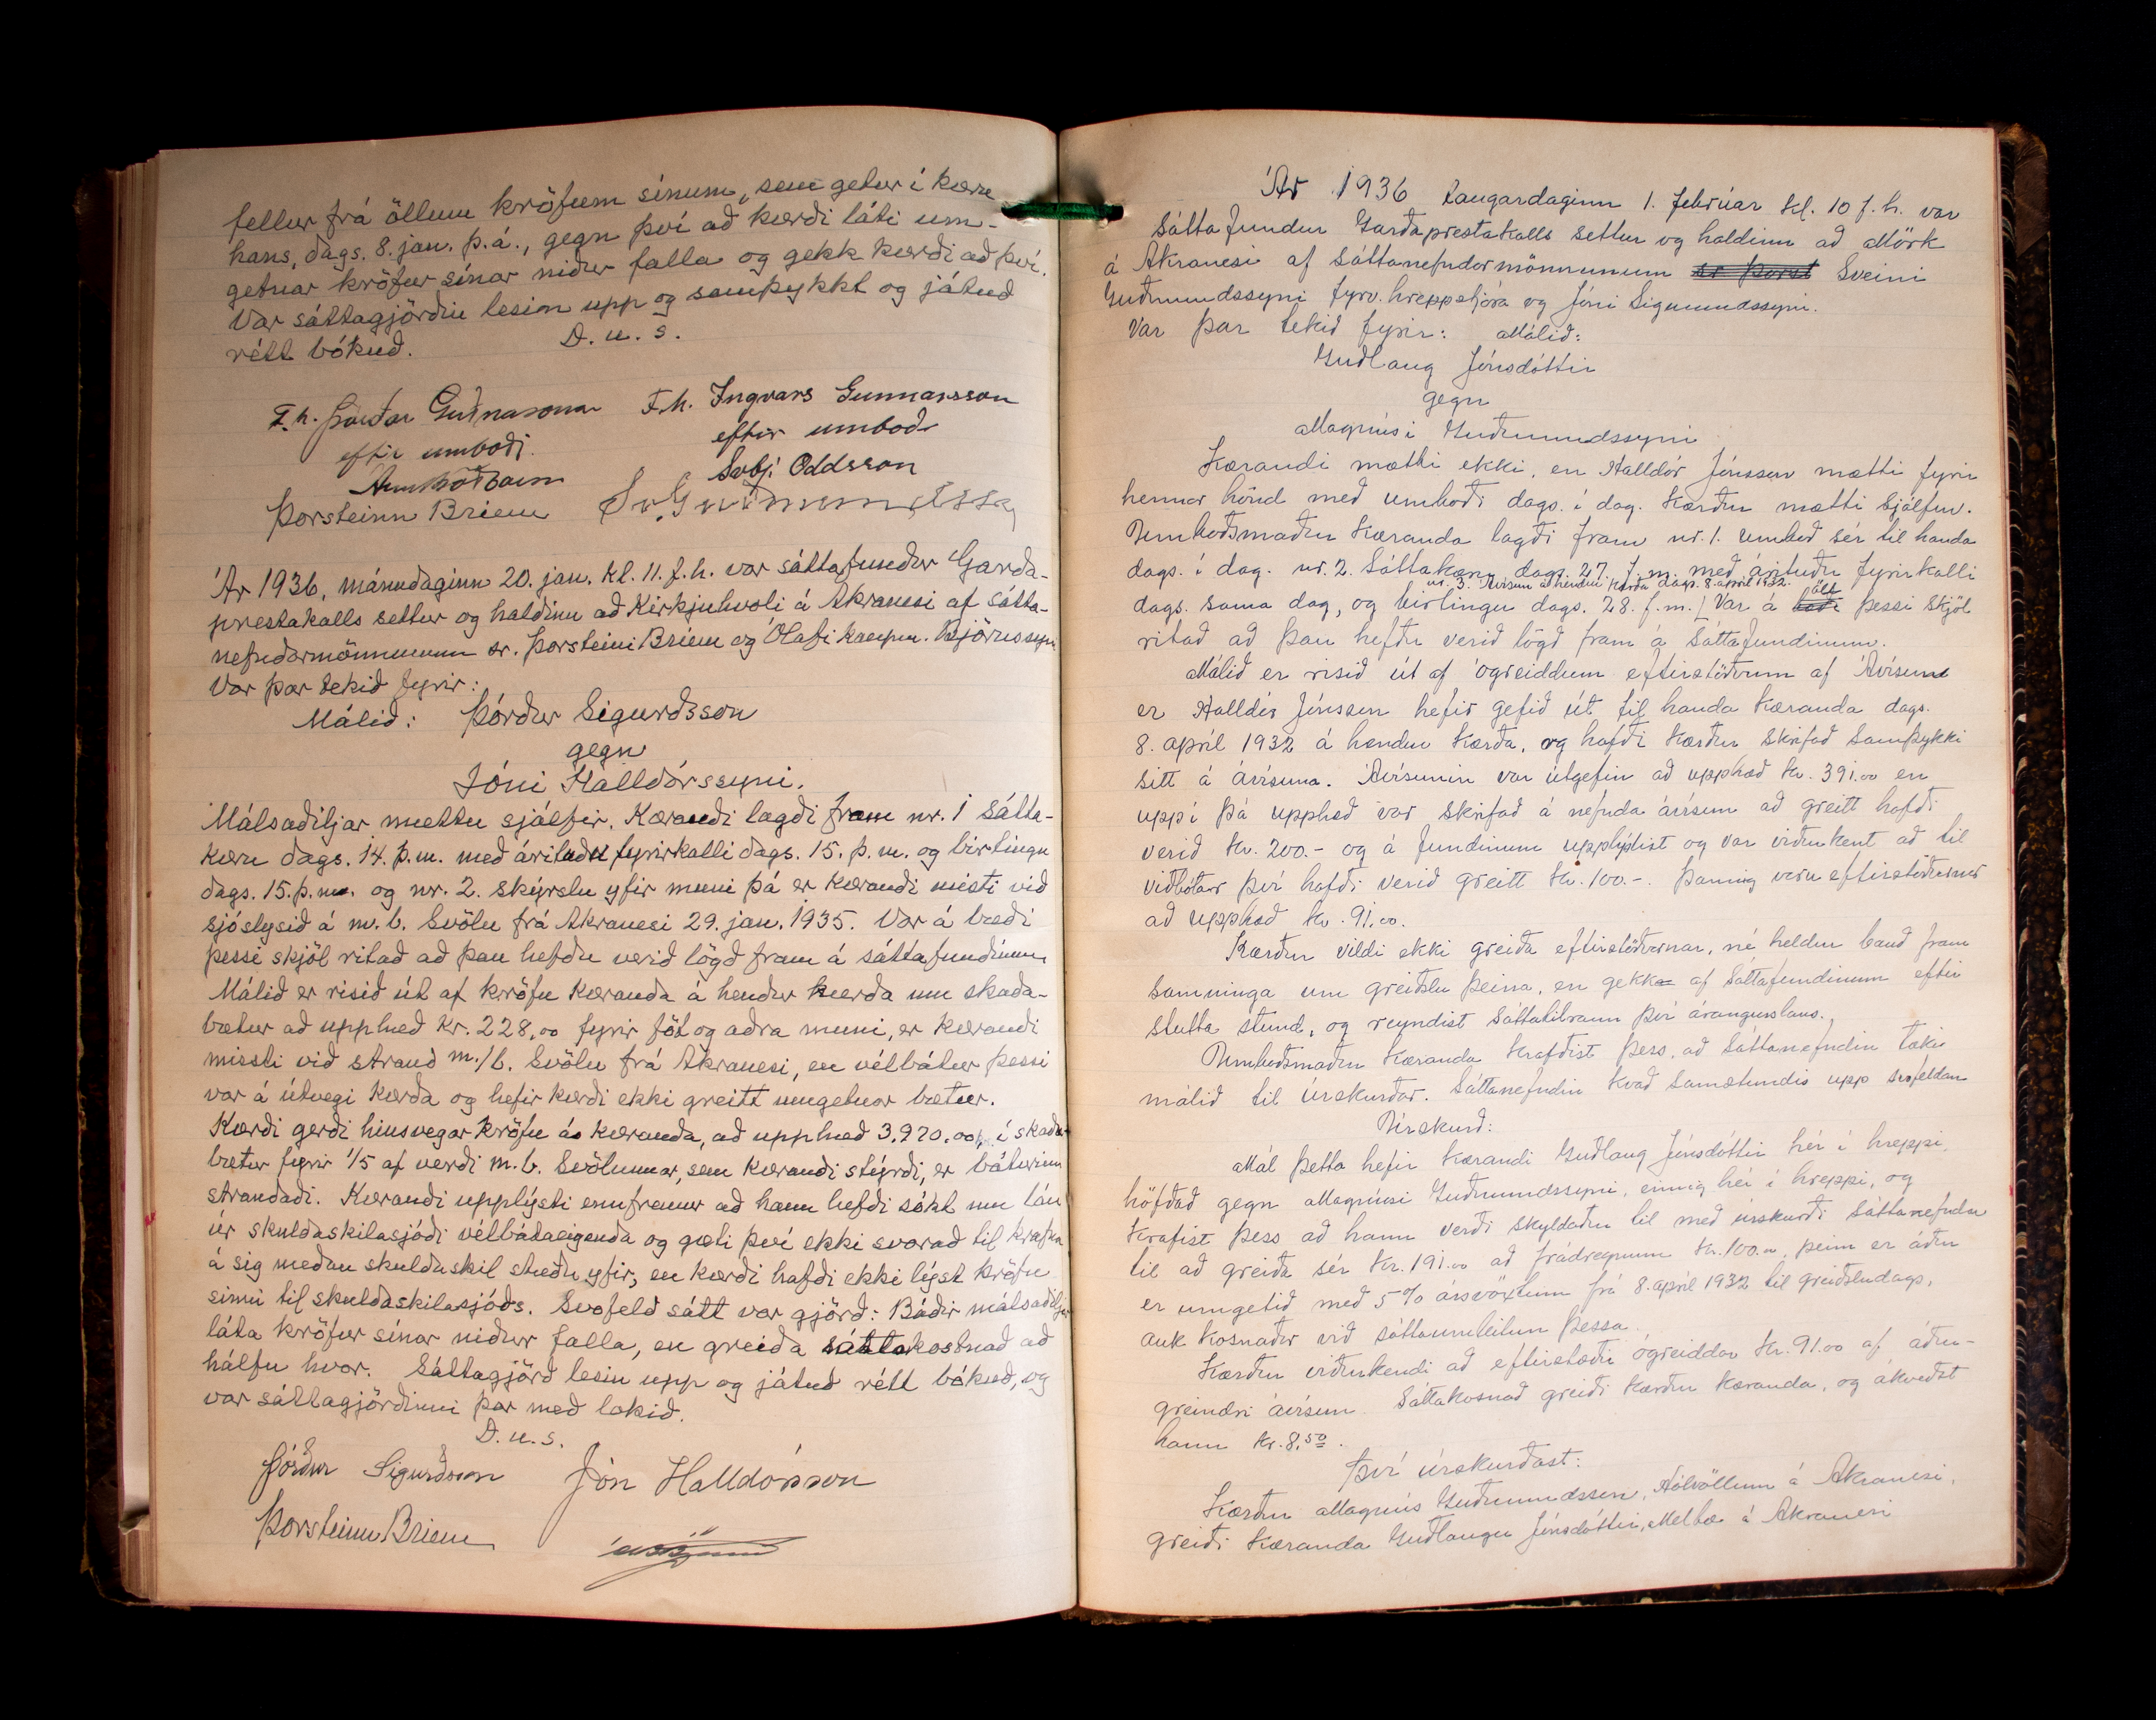 fellur frá öllum kröfum sínum, sem getur í kæru
hans, dags. 8. jan. þ.á., gegn því að kærði láti um-
getnar kröfur sínar niður falla og gekk kærði að því.
Var sáttagjörðin lesin upp og samþykkt og játuð
rétt bókuð. D. u. s.
F.h. Þórðar Guðnasonar F.h. Ingvars Gunnarsson
eftir umboði. eftir umboði
Svbj. Oddsson
Þorsteinn Briem Sv. Guðmundsson
Ár 1936, mánudaginn 20. jan. kl. 11. f.h. var sáttafundur Garða-
prestakalls settur og haldinn að Kirkjuhvoli á Akranesi af sátta-
nefndarmönnunum sr. Þorsteini Briem og Ólafi kaupm. Björnssyni
Var þar tekið fyrir:
Málið: Þórður Sigurðsson
gegn
Jóni Halldórssyni.
Málsaðiljar mættu sjálfir. Kærandi lagði fram nr. 1 sátta-
kæru dags. 14. þ.m. með árituðu fyrirkalli dags. 15. þ.m. og birtingu
dags. 15. þ.m. og nr. 2. skýrslu yfir muni þá er kærandi misti við
sjóslysið á m.b. Svölu frá Akranesi 29. jan. 1935. Var á bæði
þessi skjöl ritað að þau hefðu verið lögð fram á sáttafundinum
Málið er risið út af kröfu kæranda á hendur kærða um skaða-
bætur að upphæð kr. 228,00 fyrir föt og aðra muni, er kærandi
missti við strand m./b. Svölu frá Akranesi, en vélbátur þessi
var á útvegi kærða og hefir kærði ekki greitt umgetnar bætur.
Kærði gerði hinsvegar kröfu á kæranda, að upphæð 3.970.00 kr. í skaða-
bætur fyrir 1/5 af verði m.b. Svölunnar, sem kærandi stýrði, er báturinn
strandaði. Kærandi upplýsti ennfremur að hann hefði sókt um lán
úr skuldaskilasjóði vélbátaeigenda og gæti því ekki svarað til krafna
á sig meðan skuldaskil stæðu yfir, en kærði hafði ekki lýst kröfu
sinni til skuldaskilasjóðs. Svofeld sátt var gjörð: Báðir málsaðiljar
láta kröfur sínar niður falla, en greiða sáttakostnað að
hálfu hvor. Sáttagjörð lesin upp og játuð rétt bókuð, og
var sáttagjörðinni þar með lokið.
D. u. s.
Þórður Sigurðsson Jón Halldórsson
Þorsteinn Briem
Ár 1936 Laugardaginn 1. febrúar kl. 10 f.h. var
Sáttafundur Garðaprestakalls settur og haldinn að Mörk
á Akranesi af sáttanefndarmönnunum sr Þorst Sveini
Guðmundssyni fyrv. hreppstjóra og Jóni Sigmundssyni.
Var þar tekið fyrir: Málið:
Guðlaug Jónsdóttir
gegn
Magnúsi Guðmundssyni
Kærandi mætti ekki, en Halldór Jónsson mætti fyrir
hennar hönd með umboði dags. í dag. Kærður mætti sjálfur.
Umboðsmaður Kæranda lagði fram nr. 1. umboð sér til handa
dags. í dag. nr. 2. Sáttakæru dags. 27. f.m. með árituðu fyrirkalli
nr. 3. Ávísun á hendur kærða dags. 8. apríl 1932.
dags. sama dag, og birtingu dags. 28. f.m. / Var á öll þessi skjöl
ritað að þau hefðu verið lögð fram á Sáttafundinum.
Málið er risið út af ógreiddum eftirstöðvum af Ávísun
er Halldór Jónsson hefir gefið út til handa kæranda dags.
8. apríl 1932 á hendur kærða, og hafði kærður skrifað samþykki
sitt á ávísuna. Ávísunin var útgefin að upphæð kr. 391.00 en
uppí þá upphæð var skrifað á nefnda ávísun að greitt hafði
verið kr. 200.- og á fundinum upplýstist og var viðurkent að til
viðbótar því hafði verið greitt kr. 100.-. Þannig voru eftirstöðvarnar
að upphæð kr. 91.00.
Kærður vildi ekki greiða eftirstöðvarnar, né heldur bauð fram
samninga um greiðslu þeirra, en gekk af Sáttafundinum eftir
stutta stund, og reyndist sáttatilraun því árangurslaus.
Umboðsmaður Kæranda krafðist þess, að Sáttanefndin tæki
málið til úrskurðar. Sáttanefndin kvað samstundis upp svofeldan
Úrskurð:
Mál þetta hefir kærandi Guðlaug Jónsdóttir hér í hreppi,
höfðað gegn Magnúsi Guðmundssyni, einnig hér í hreppi, og
krafist þess að hann verði skyldaður til með úrskurði Sáttanefndar
til að greiða sér kr. 191.00 að frádregnum kr. 100.00, þeim er áður
er umgetið með 5% ársvöxtum frá 8. apríl 1932 til greiðsludags,
auk kosnaðar við sáttaumleitun þessa.
Kærður viðurkendi að eftirstæði ógreiddar kr. 91.00 af áður-
greindri ávísun. Sáttakosnað greiði kærður kæranda, og ákveðst
hann kr. 8.50.
Því úrskurðast:
Kærður Magnús Guðmundsson, Hólvöllum á Akranesi,
greiði kæranda Guðlaugu Jónsdóttir, Melbæ á Akranesi